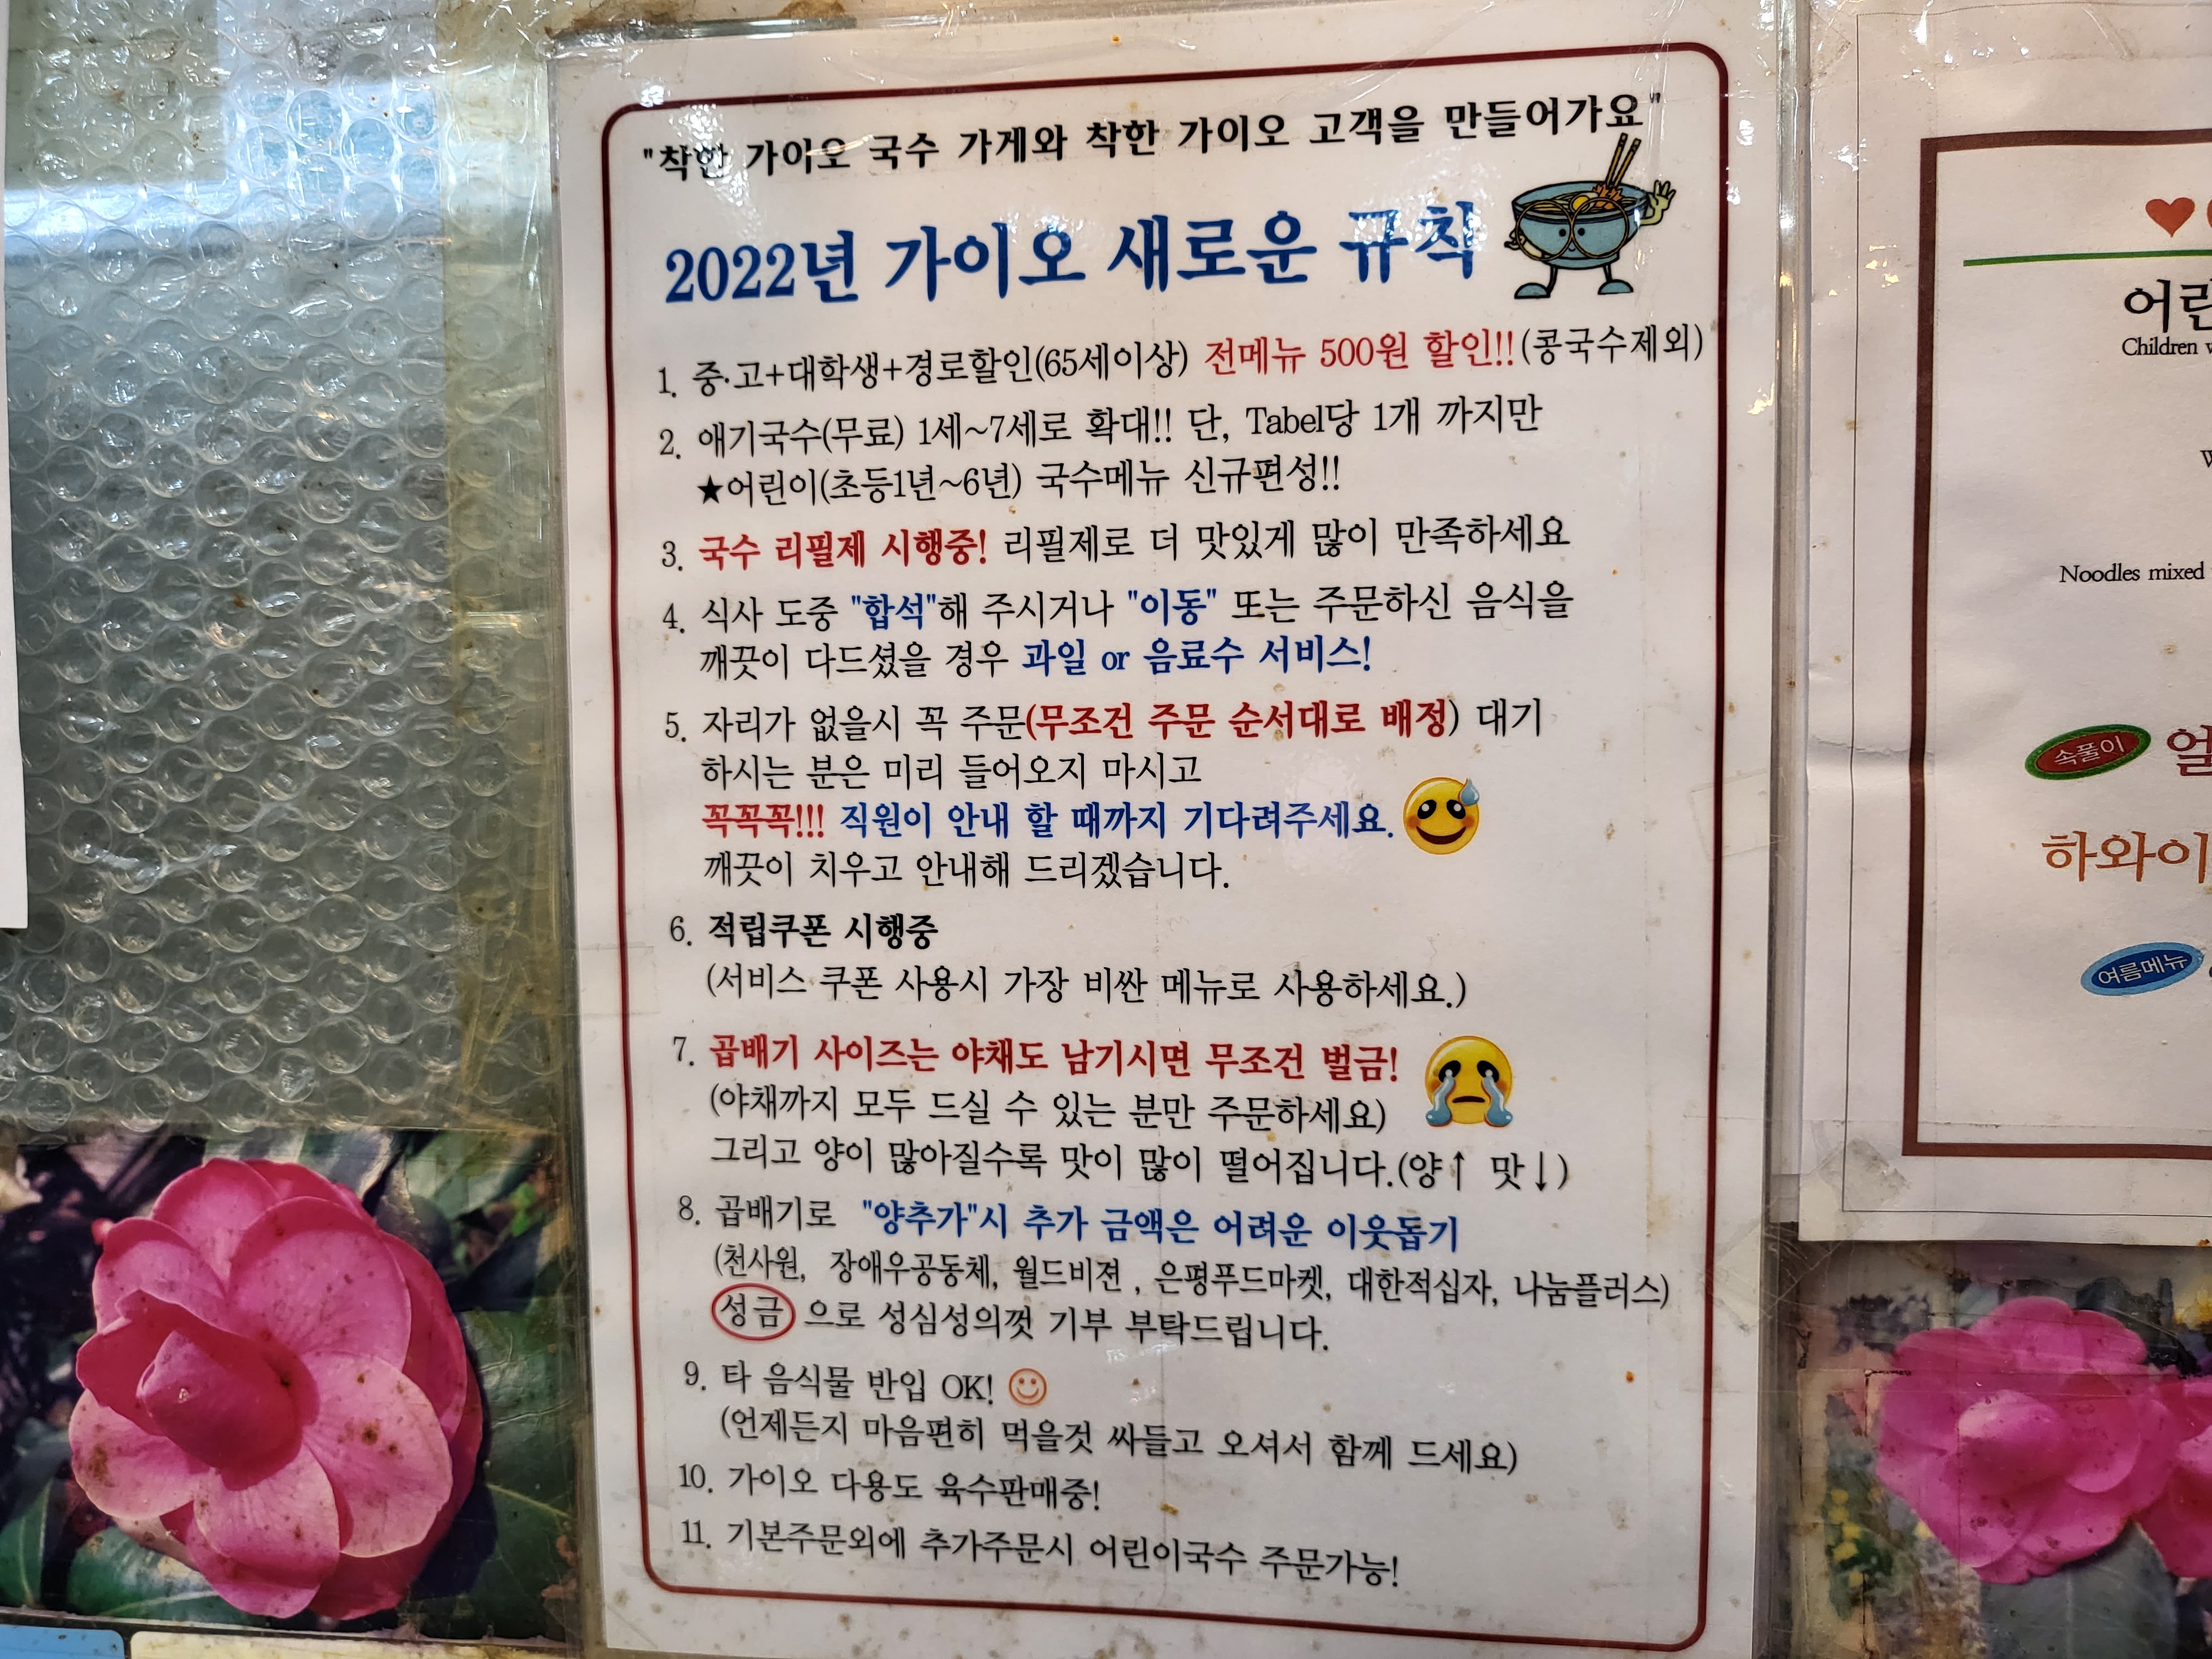 "착한 가이오 국수 가게와 착한 가이오 고객을 만들어가요"
2022년 가이오 새로운 규칙
1. 중·고+대학생+경로할인(65세이상) 전메뉴 500원 할인!!(콩국수제외)
2. 애기국수(무료) 1세~7세로 확대!! 단, Tabel당 1개 까지만
★어린이(초등1년~6년) 국수메뉴 신규편성!!
3. 국수 리필제 시행중! 리필제로 더 맛있게 많이 만족하세요
4. 식사 도중 "합석"해 주시거나 "이동" 또는 주문하신 음식을
깨끗이 다드셨을 경우 과일 or 음료수 서비스!
5. 자리가 없을시 꼭 주문(무조건 주문 순서대로 배정) 대기
하시는 분은 미리 들어오지 마시고
꼭꼭꼭!!! 직원이 안내 할 때까지 기다려주세요.
깨끗이 치우고 안내해 드리겠습니다.
6. 적립쿠폰 시행중
(서비스 쿠폰 사용시 가장 비싼 메뉴로 사용하세요.)
7. 곱배기 사이즈는 야채도 남기시면 무조건 벌금!
(야채까지 모두 드실 수 있는 분만 주문하세요)
그리고 양이 많아질수록 맛이 많이 떨어집니다.(양↑ 맛↓)
8. 곱배기로 "양추가"시 추가 금액은 어려운 이웃돕기
(천사원, 장애우공동체, 월드비젼, 은평푸드마켓, 대한적십자, 나눔플러스)
성금 으로 성심성의껏 기부 부탁드립니다.
9. 타 음식물 반입 OK!
(언제든지 마음편히 먹을것 싸들고 오셔서 함께 드세요)
10. 가이오 다용도 육수판매중!
11. 기본주문외에 추가주문시 어린이국수 주문가능!
어린
Children
Noodles mixed
속풀이
하와이
여름메뉴